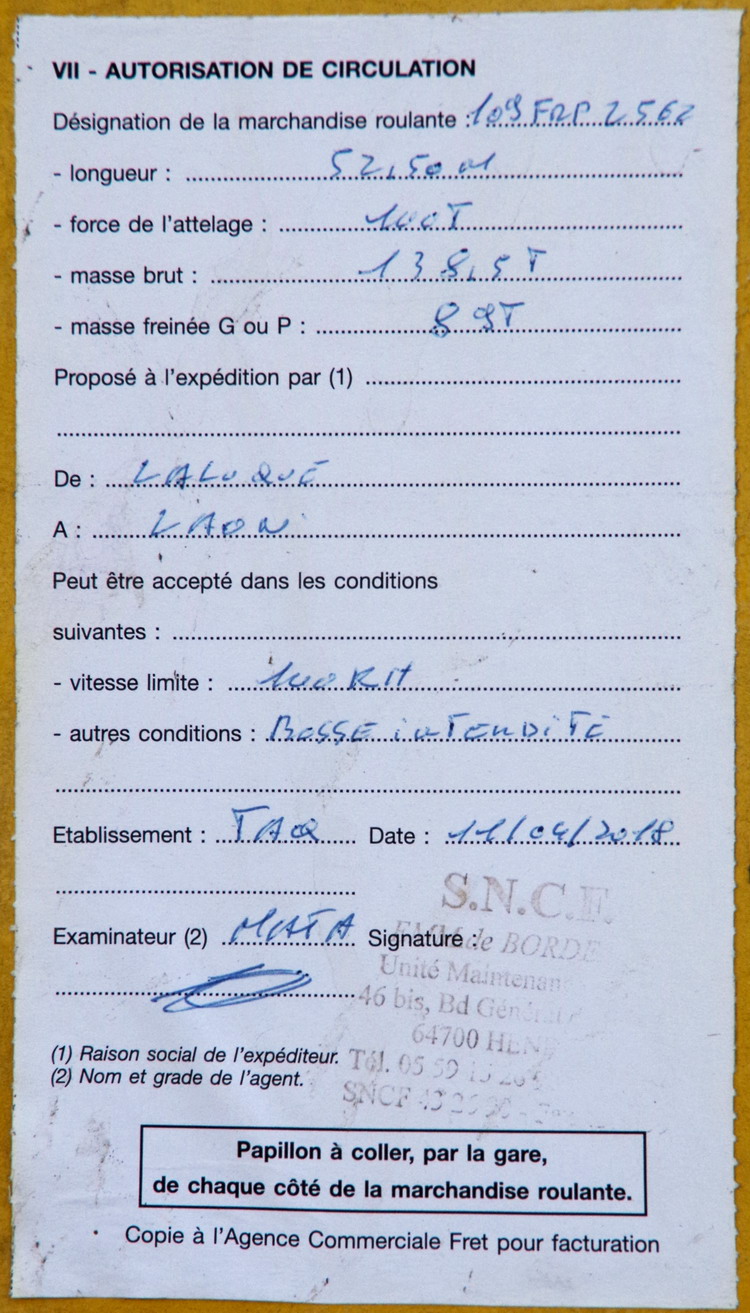 VII - AUTORISATION DE CIRCULATION
Désignation de la marchandise roulante : 109 FRP 2562
- longueur : 52,50 M
- force de l'attelage : 100T
- masse brut : 138,5T
- masse freinée G ou P : 89T
Proposé à l'expédition par (1)
De : LALUQUE
A : LAON
Peut être accepté dans les conditions
suivantes :
- vitesse limite : 100 KH
- autres conditions : BOSSE iNTERDiTE
Etablissement : TAQ Date : 11/04/2018
S.N.C.F.
Examinateur (2) MATA Signature :
de BORDE
Unité Maintenan
46 bis, Bd Général
64700 HEN
(1) Raison social de l'expéditeur. Tél. 05 59
(2) Nom et grade de l'agent.
SNCF
Papillon à coller, par la gare,
de chaque côté de la marchandise roulante.
Copie à l'Agence Commerciale Fret pour facturation